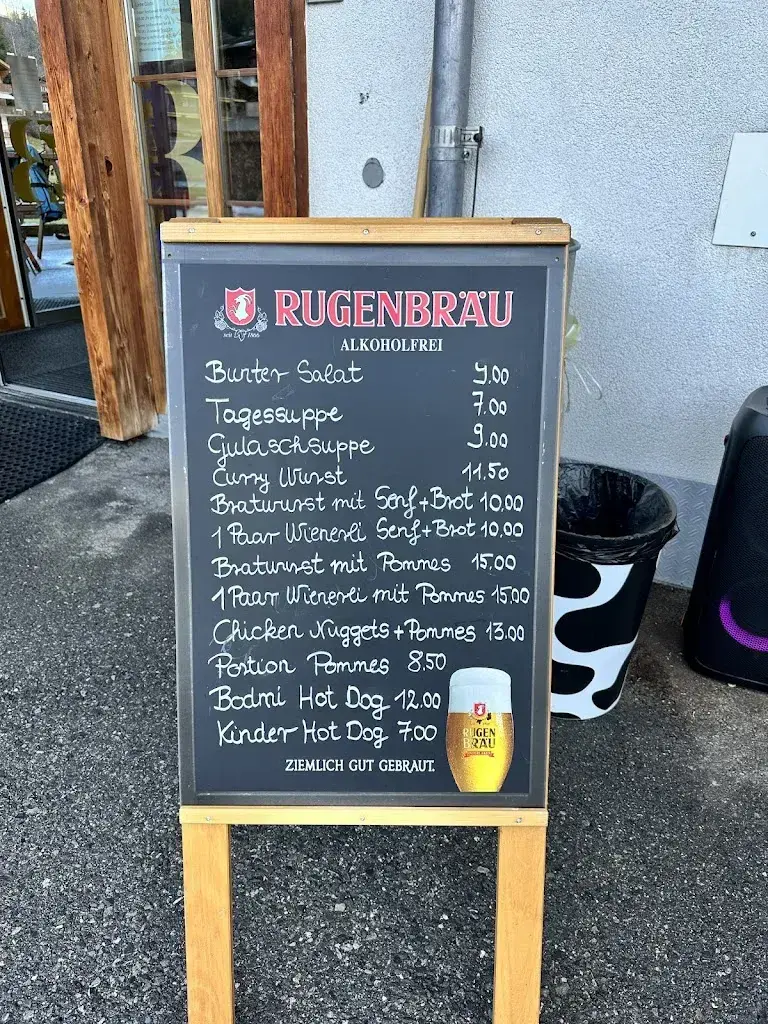 RUGENBRÄU
seit 1866
ALKOHOLFREI
Bunter Salat 9.00
Tagessuppe 7.00
Gulaschsuppe 9.00
Curry Wurst 11.50
Bratwurst mit Senf+Brot 10.00
1 Paar Wienerli Senf+Brot 10.00
Bratwurst mit Pommes 15.00
1 Paar Wienerli mit Pommes 15.00
Chicken Nuggets+Pommes 13.00
Portion Pommes 8.50
Bodmi Hot Dog 12.00
Kinder Hot Dog 7.00
RUGEN
BRÄU
ZIEMLICH GUT GEBRAUT.